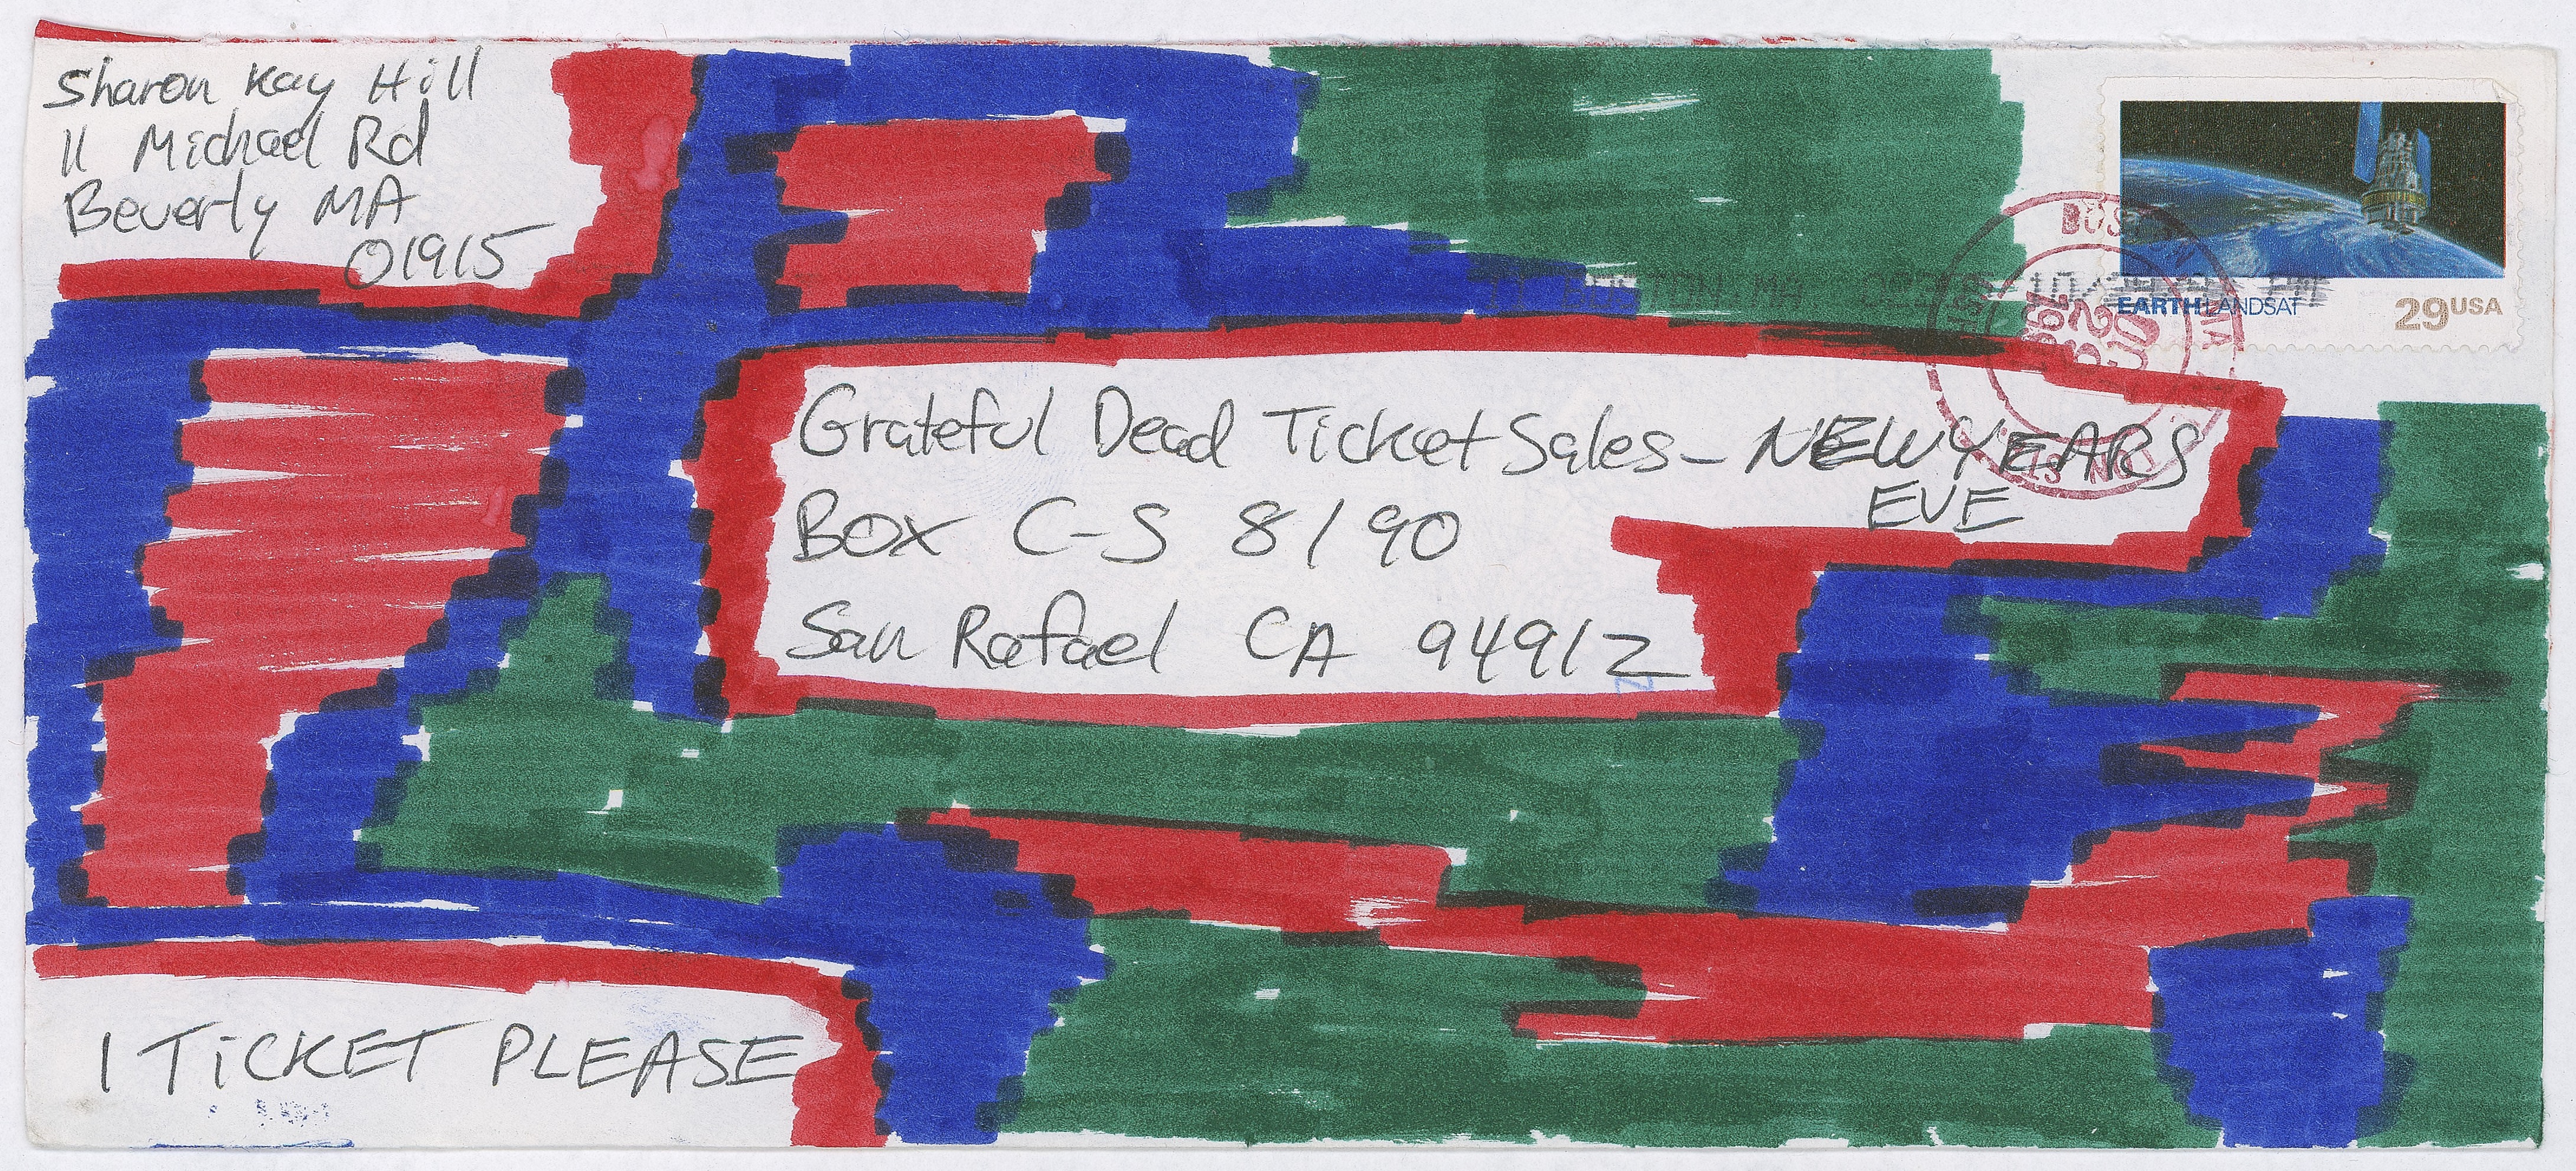 Sharon Kay Hill
11 Michael Rd
Beverly MA
01915
EARTH LANDSAT
29USA
Grateful Dead Ticket Sales - NEW YEARS
EVE
BOX C-S 8190
San Rafael CA 94912
1 TiCKET PLEASE